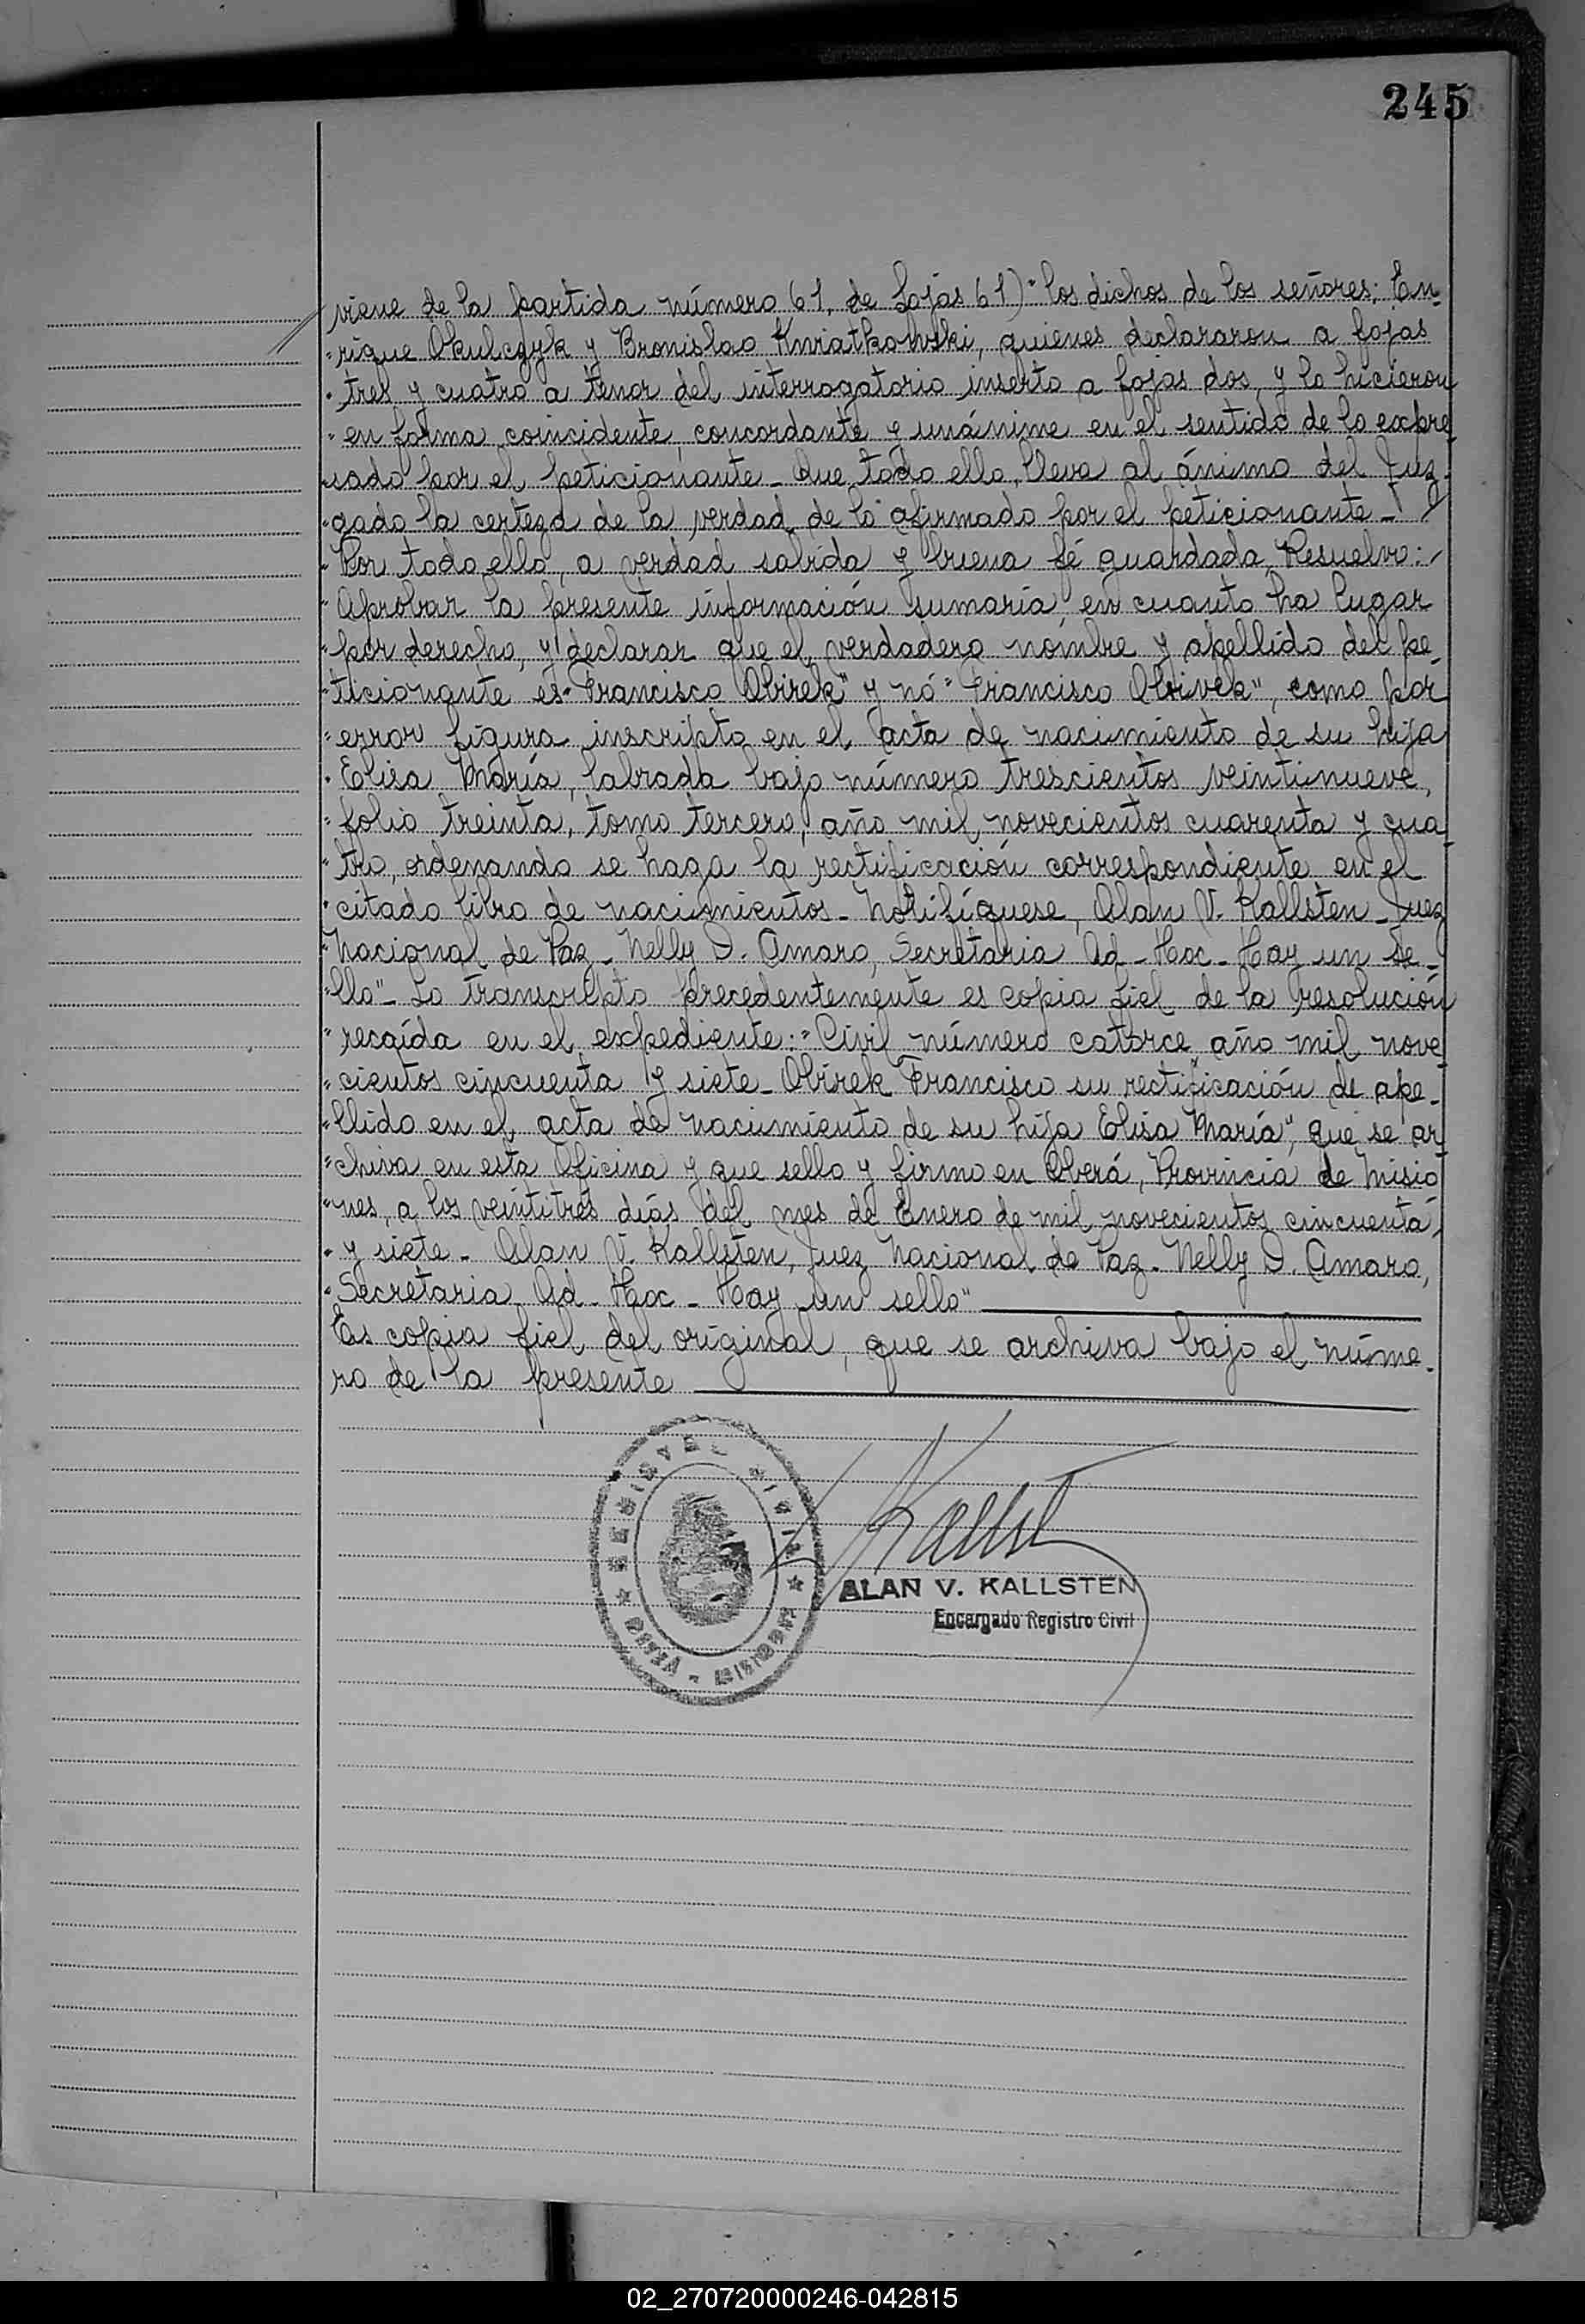 245
viene de la partida número 61, de fojas 61) "los dichos de los señores: En-
"rique Okulczyk y Bronislao Kwiatkowski, quienes declararon a fojas
"tres y cuatro a tenor del interrogatorio inserto a fojas dos, y lo hicieron
"en forma coincidente, concordante y unánime en el sentido de lo expre
"sado por el peticionante_ Que todo ello, lleva al ánimo del Juz-
"gado la certeza de la verdad de lo afirmado por el peticionante_
"Por todo ello, a verdad sabida y buena fé guardada, Resuelvo:
"Aprobar la presente información sumaria en cuanto ha lugar
"por derecho, y declarar que el verdadero nombre y apellido del pe-
"ticionante es "Francisco Obirek" y nó "Francisco Obrivek", como por
"error figura inscripto en el acta de nacimiento de su hija
"Elisa María, labrada bajo número trescientos veintinueve,
"folio treinta, tomo tercero, año mil novecientos cuarenta y cua
"tro, ordenando se haga la rectificación correspondiente en el
"citado libro de nacimientos_ Notifíquese, Alan V. Kallsten_ Juez
"Nacional de Paz_ Nelly D. Amaro, Secretaria Ad-Hoc_ Hay un se-
"llo"_ Lo transcripto precedentemente es copia fiel de la resolución
"recaída en el expediente: "Civil número catorce año mil nove
"cientos cincuenta y siete_ Obirek Francisco su rectificación de ape-
"llido en el acta de nacimiento de su hija Elisa María", que se ar
"chiva en esta Oficina y que sello y firmo en Oberá, Provincia de Misio
"nes, a los veintitres días del mes de Enero de mil novecientos cincuenta
"y siete_ Alan V. Kallsten, Juez Nacional de Paz_ Nelly D. Amaro,
"Secretaria Ad-Hoc_ Hay un sello"
Es copia fiel del original, que se archiva bajo el núme-
ro de la presente
Kallst
ALAN V. KALLSTEN
Encargado Registro Civil
02_270720000246-042815